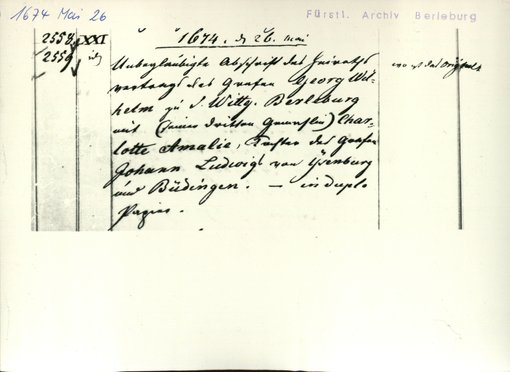 1674 Mai 26
Fürstl. Archiv Berleburg
2558 XXI
2559
1674. d 26. Mai
Unbeglaubigte Abschrift des Heiraths
vertrags des Grafen Georg Wil-
helm zu S. Wittg. Berleburg
mit (seiner dritten Gemahlin) Char-
lotte Amalie, Tochter des Grafen
Johann Ludwig von Ysenburg
und Büdingen. — in duplo
Papier.
wo ist das Original